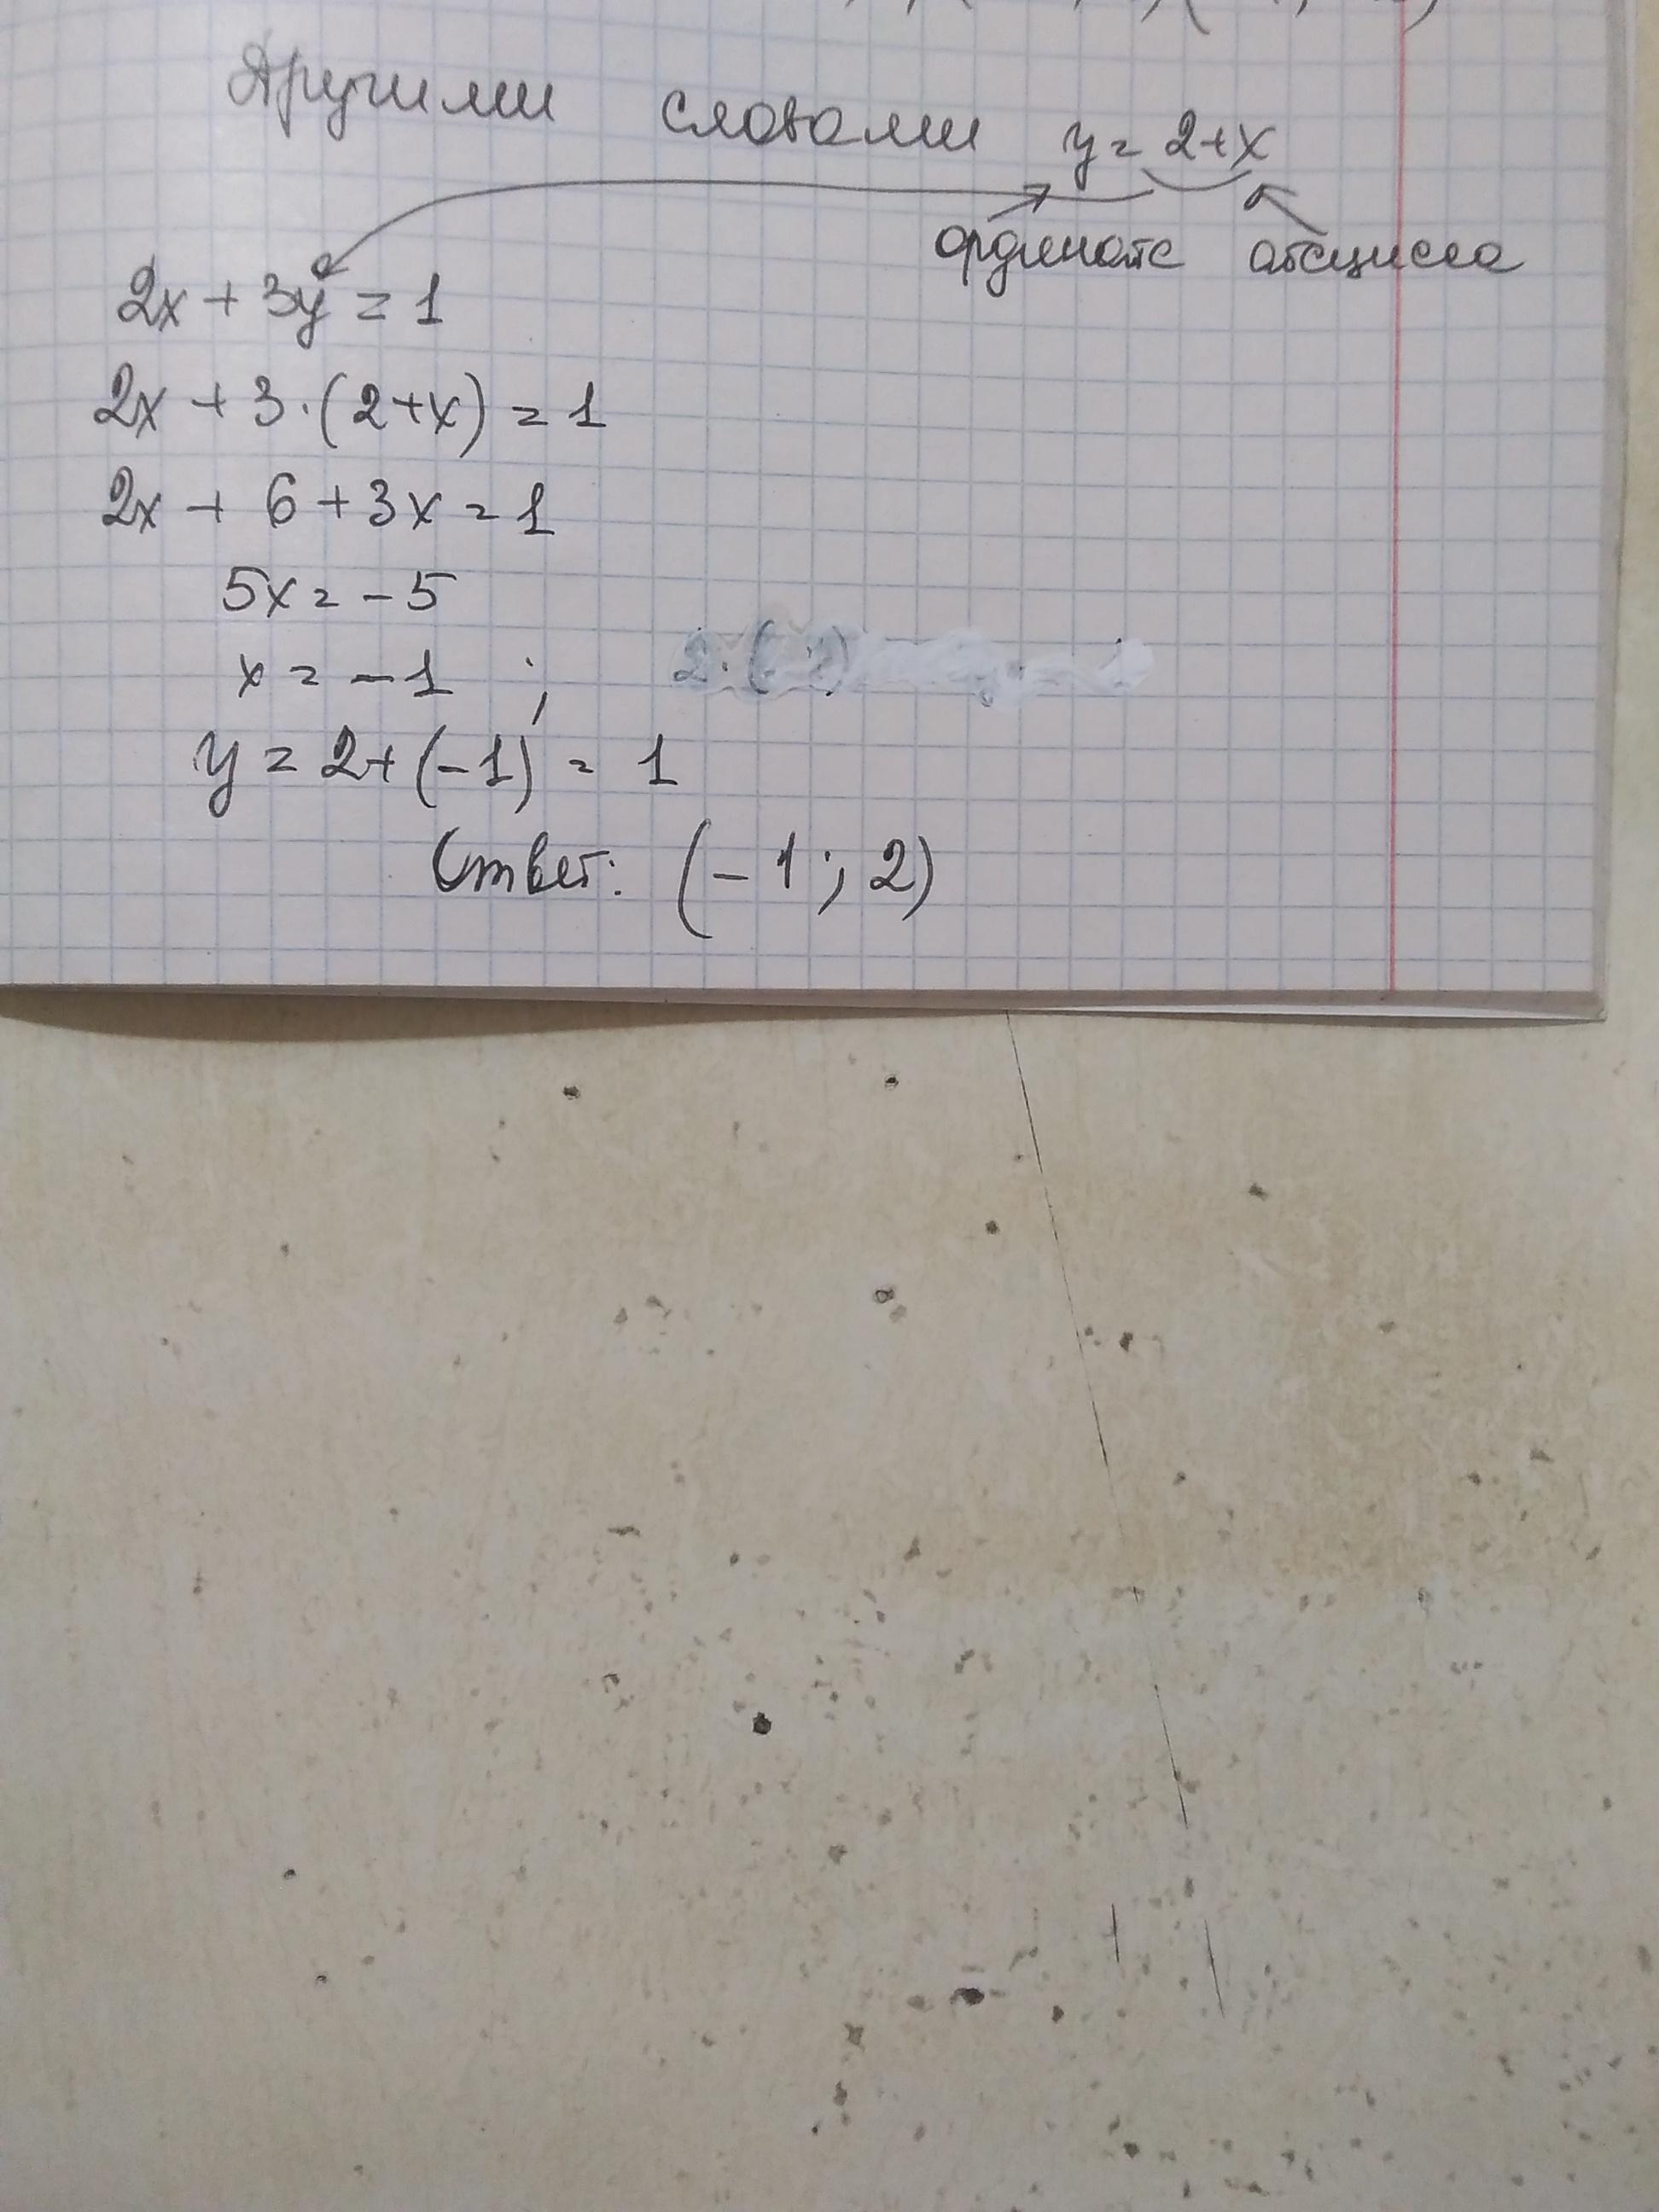 Другими словами y = 2+x
ордината абсцисса
2x + 3y = 1
2x + 3·(2+x) = 1
2x + 6 + 3x = 1
5x = -5
x = -1 ;
y = 2+(-1) = 1
Ответ: (-1; 2)